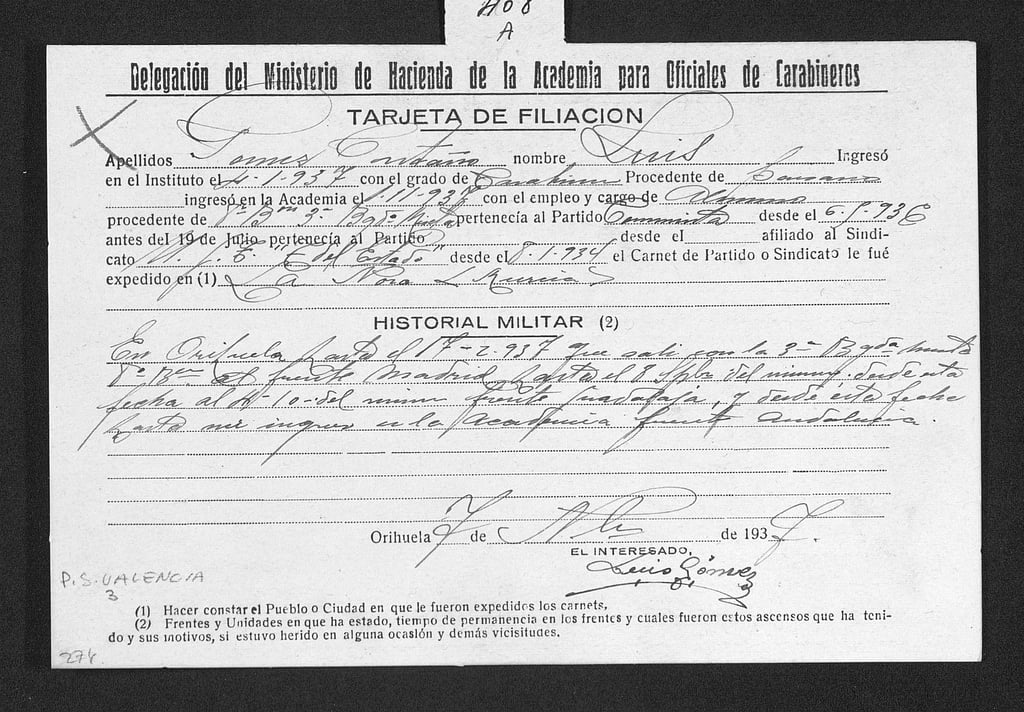 408
A
Delegación del Ministerio de Hacienda de la Academia para Oficiales de Carabineros
TARJETA DE FILIACION
Apellidos Gomez nombre Luis Ingresó
en el Instituto el 4-1-937 con el grado de Procedente de
ingresó en la Academia el 1-11-937 con el empleo y cargo de Alumno
procedente de 8º Bon 3ª Bgda Mixta pertenecía al Partido Comunista desde el 6-8-936
antes del 19 de Julio pertenecía al Partido desde el afiliado al Sindi-
cato U. G. T. "C del Estado" desde el 8-1-934 el Carnet de Partido o Sindicato le fué
expedido en (1) La Nora (Murcia)
HISTORIAL MILITAR (2)
En Orihuela hasta el 17-2-937 que salí con la 3ª Bgda Mixta
8º Bon al frente Madrid hasta el 8 Spbre del mismo, desde esta
fecha al 4-10- del mismo frente Guadalaja, y desde esta fecha
hasta mi ingreso en la Academia frente Andalucia.
Orihuela 7 de de 1937.
EL INTERESADO,
Luis Gómez
P.S. VALENCIA
3
(1) Hacer constar el Pueblo o Ciudad en que le fueron expedidos los carnets.
(2) Frentes y Unidades en que ha estado, tiempo de permanencia en los frentes y cuales fueron estos ascensos que ha teni-
do y sus motivos, si estuvo herido en alguna ocasión y demás vicisitudes.
274